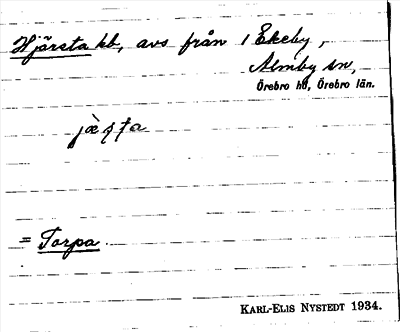 Hjärsta kb, avs från 1 Ekeby,
Almby sn,
Örebro hd, Örebro län.
jæ̀ʂʈa
= Torpa
KARL-ELIS NYSTEDT 1934.